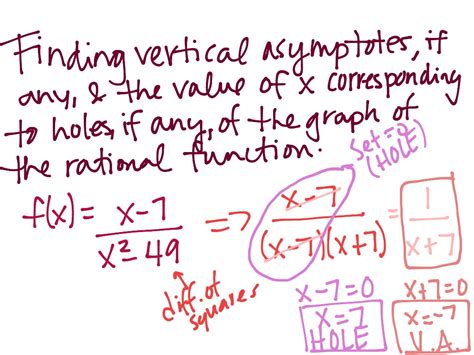 Finding vertical asymptotes, if
any, & the value of x corresponding
to holes, if any, of the graph of
the rational function.
set = 0
(HOLE)
f(x) = x-7 / x²-49 => x-7 / (x-7)(x+7) = 1 / x+7
diff. of
squares
x-7=0
x=7
HOLE
x+7=0
x=-7
V.A.